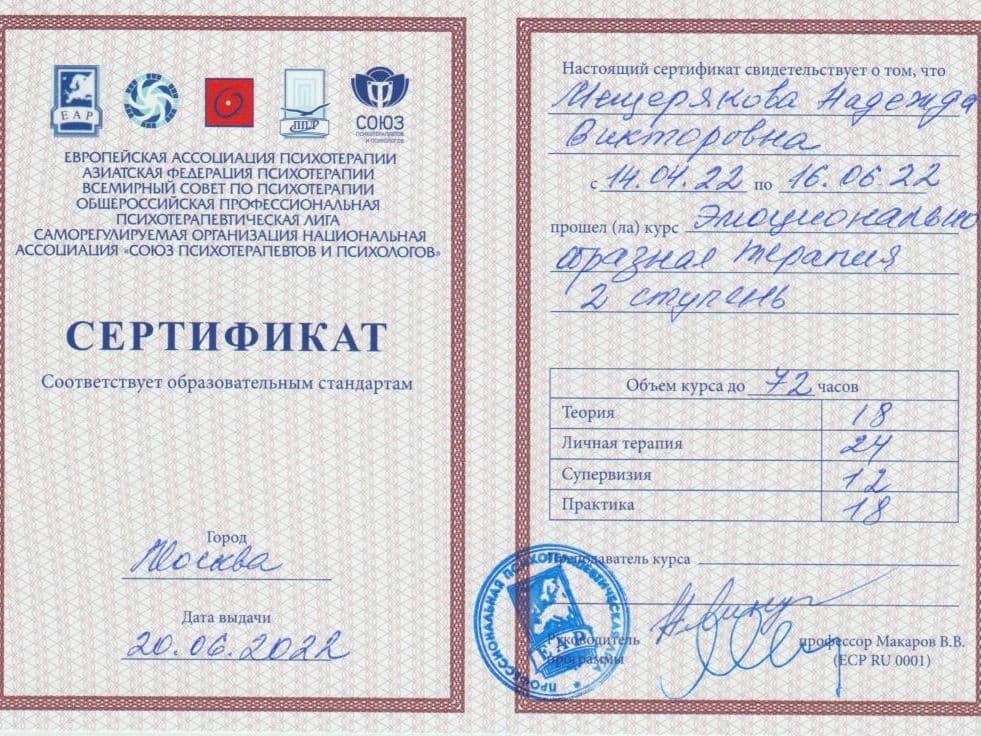 ЕАР
ППЛ
СОЮЗ
ПСИХОТЕРАПЕВТОВ
И ПСИХОЛОГОВ
ЕВРОПЕЙСКАЯ АССОЦИАЦИЯ ПСИХОТЕРАПИИ
АЗИАТСКАЯ ФЕДЕРАЦИЯ ПСИХОТЕРАПИИ
ВСЕМИРНЫЙ СОВЕТ ПО ПСИХОТЕРАПИИ
ОБЩЕРОССИЙСКАЯ ПРОФЕССИОНАЛЬНАЯ
ПСИХОТЕРАПЕВТИЧЕСКАЯ ЛИГА
САМОРЕГУЛИРУЕМАЯ ОРГАНИЗАЦИЯ НАЦИОНАЛЬНАЯ
АССОЦИАЦИЯ «СОЮЗ ПСИХОТЕРАПЕВТОВ И ПСИХОЛОГОВ»
СЕРТИФИКАТ
Соответствует образовательным стандартам
Город
Москва
Дата выдачи
20.06.2022
Настоящий сертификат свидетельствует о том, что
Мещерякова Надежда
Викторовна
с 14.04.22 по 16.06.22
прошел (ла) курс Эмоционально
образная терапия
2 ступень
Объем курса до 72 часов
Теория 18
Личная терапия 24
Супервизия 12
Практика 18
Преподаватель курса
Руководитель
программы
профессор Макаров В.В.
(ECP RU 0001)
ПРОФЕССИОНАЛЬНАЯ ПСИХОТЕРАПЕВТИЧЕСКАЯ ЛИГА
ЕАР